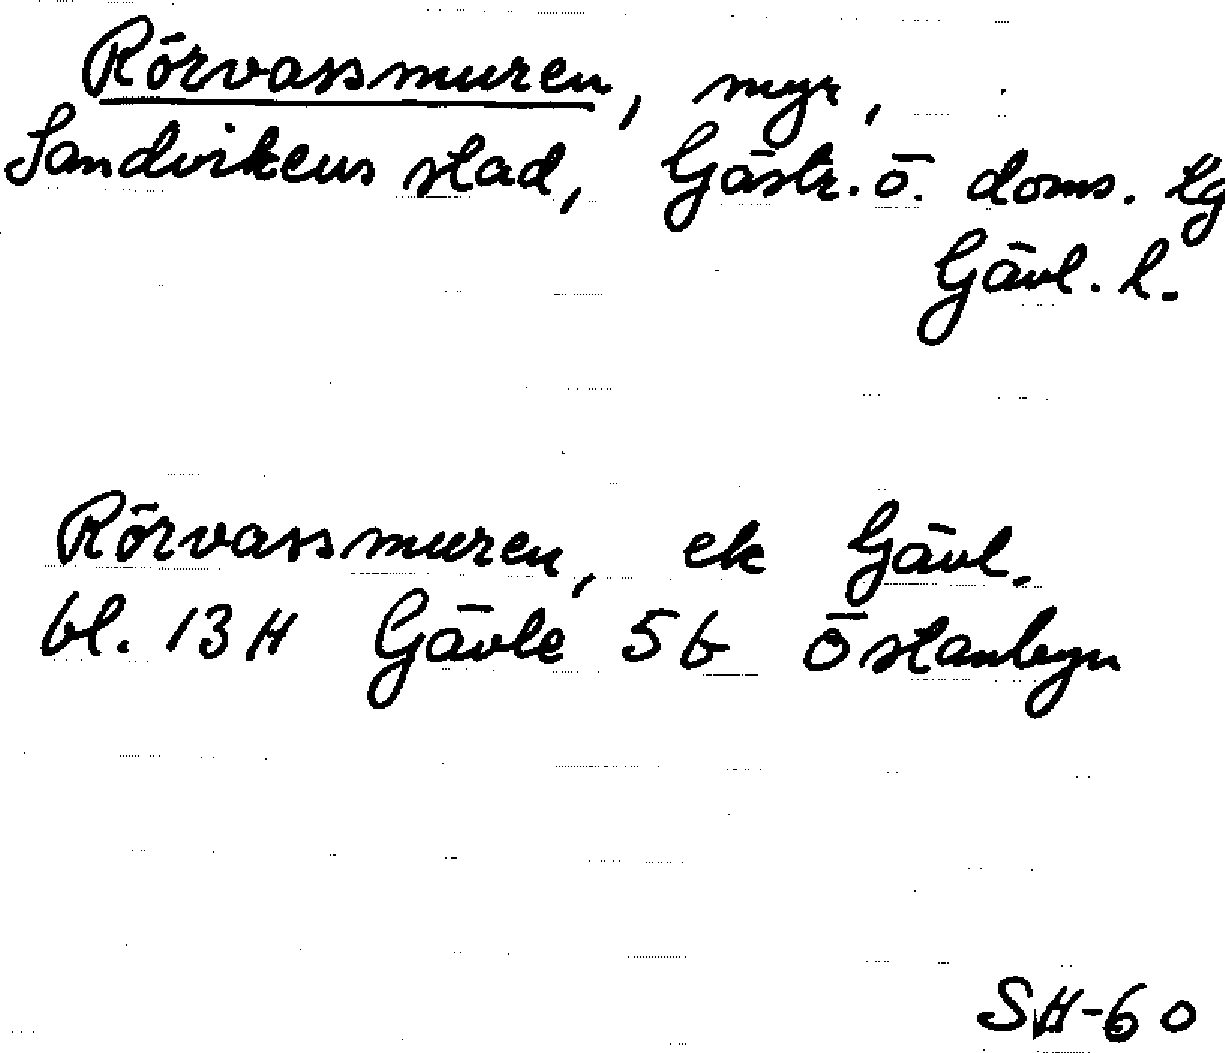 Rörvassmuren, myr,
Sandvikens stad, Gästr. ö. doms. lg
Gävl. l.
Rörvassmuren, ek Gävl.
bl. 13 H Gävle 5 b Östanbyn
SH-60